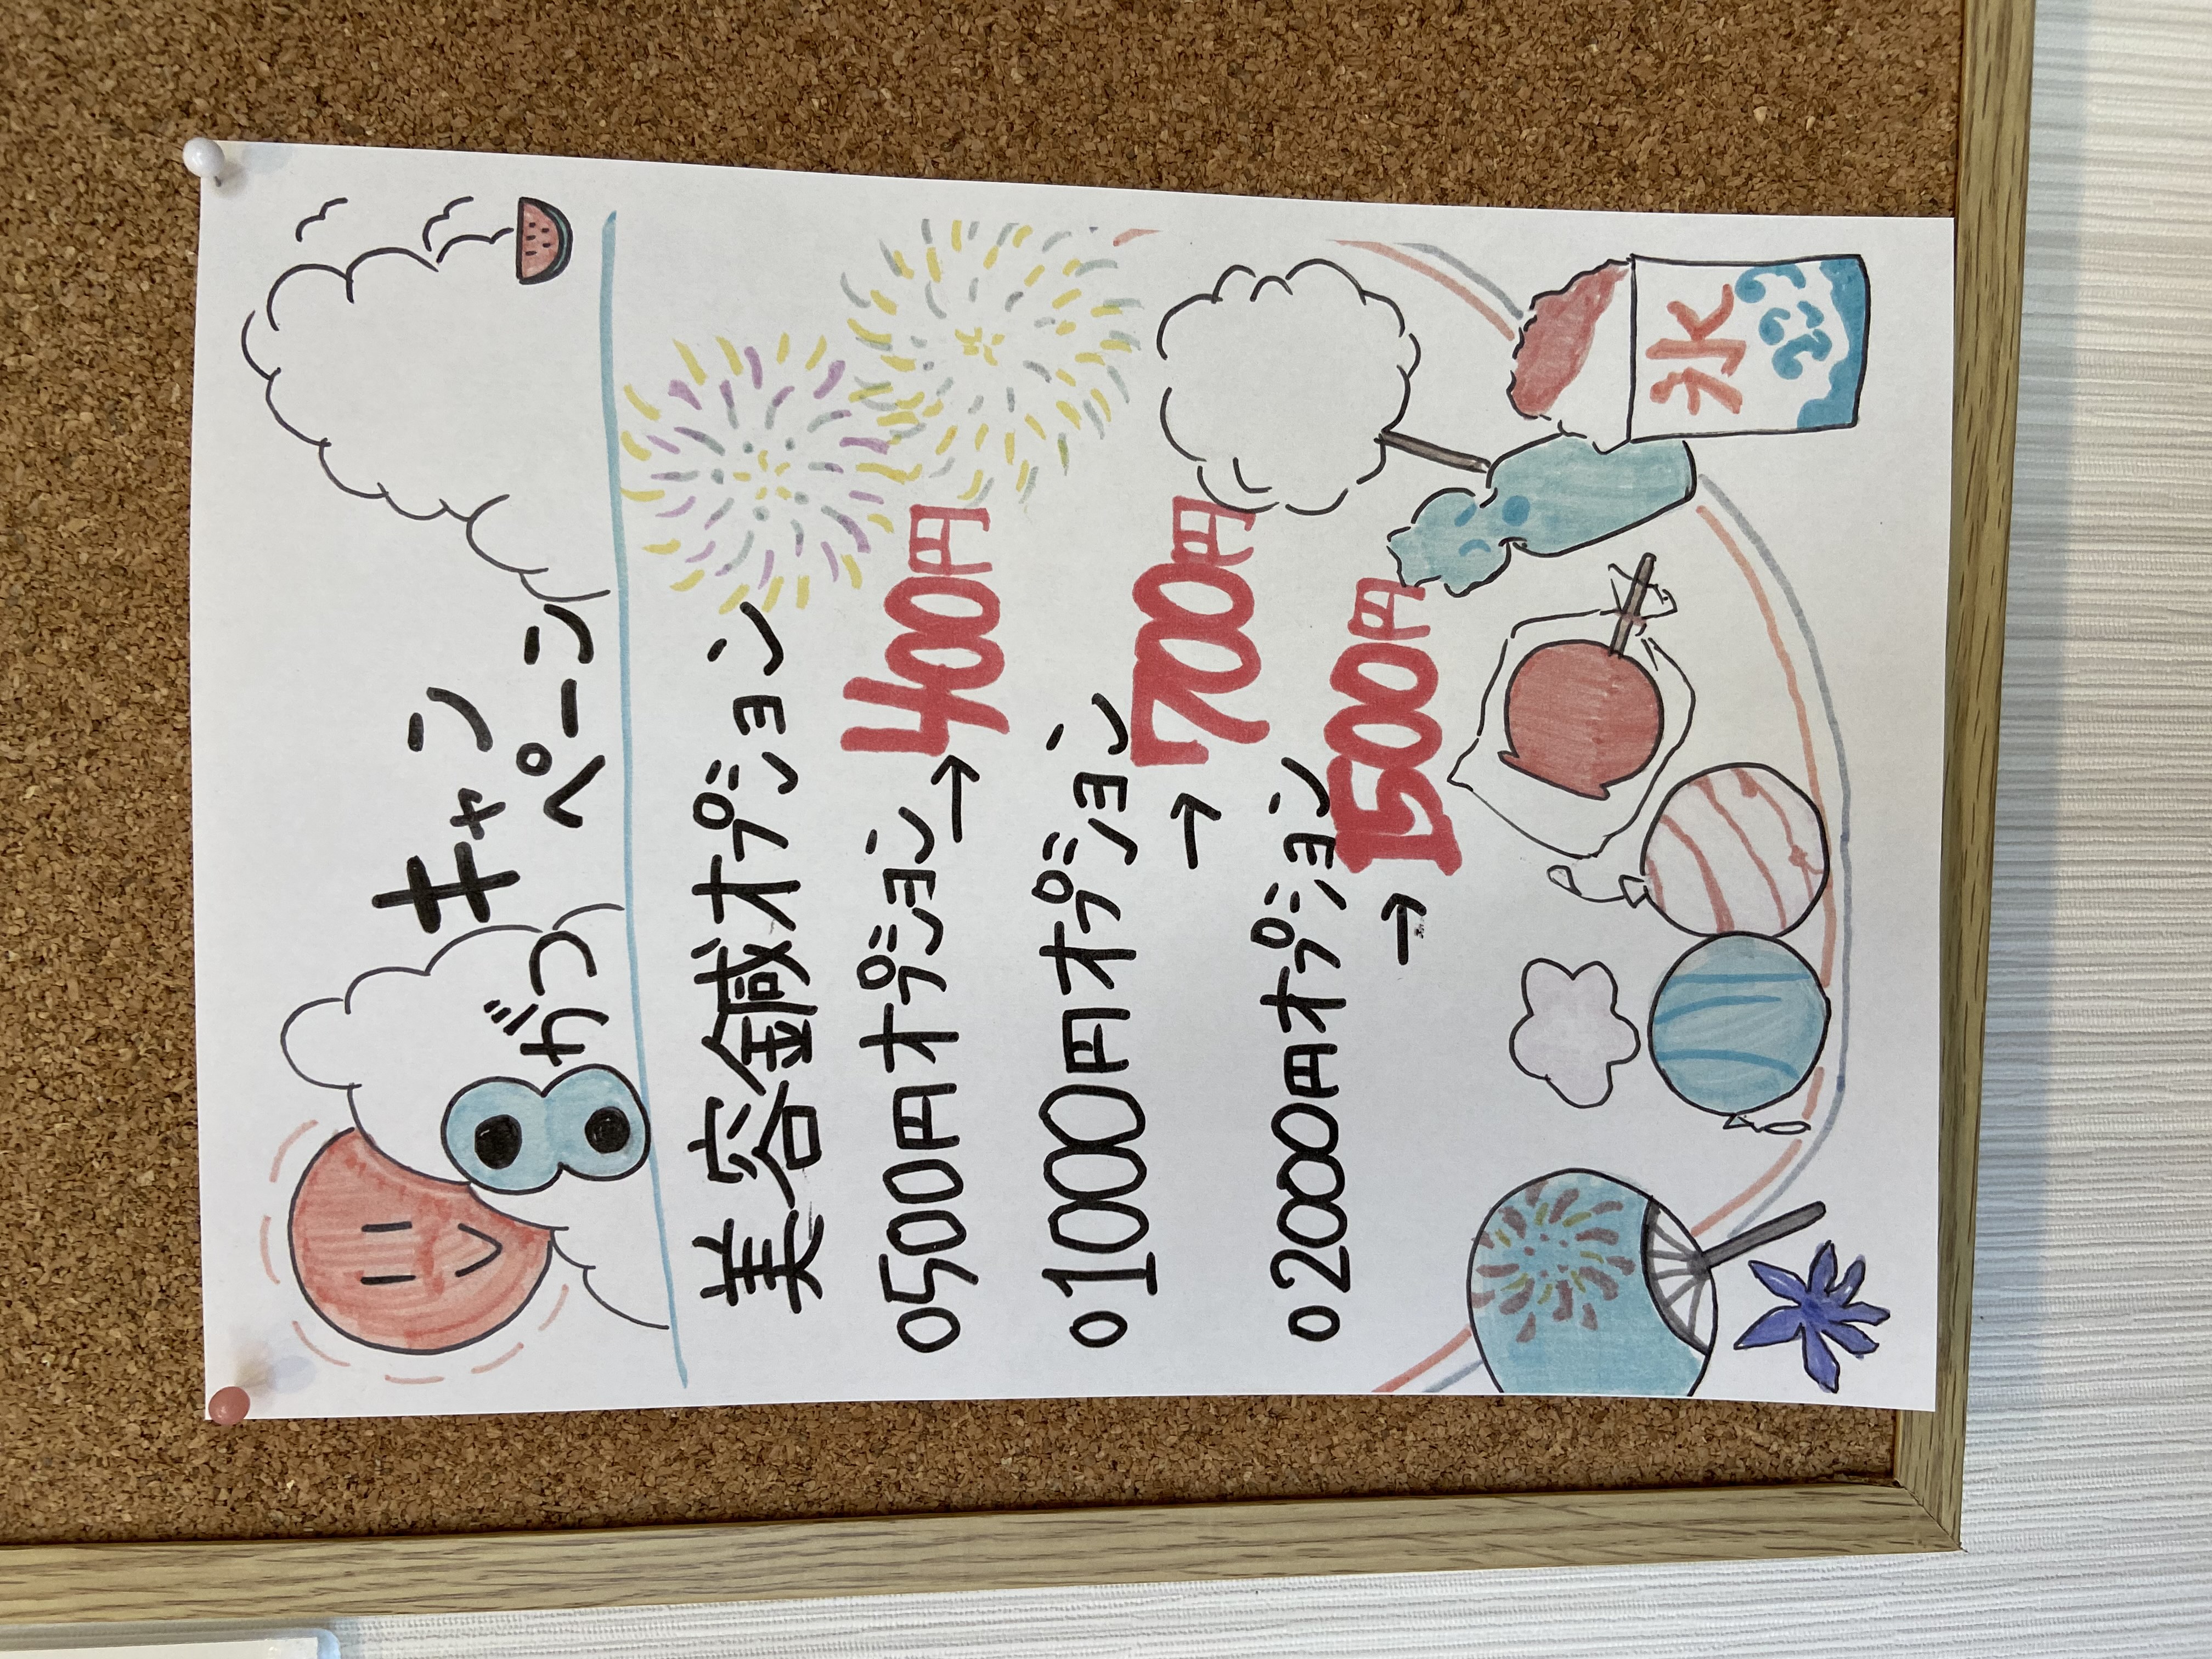 8がつ
キャン
ペーン
美容鍼オプション
○500円オプション→400円
○1000円オプション
→700円
○2000円オプション
→1500円
氷